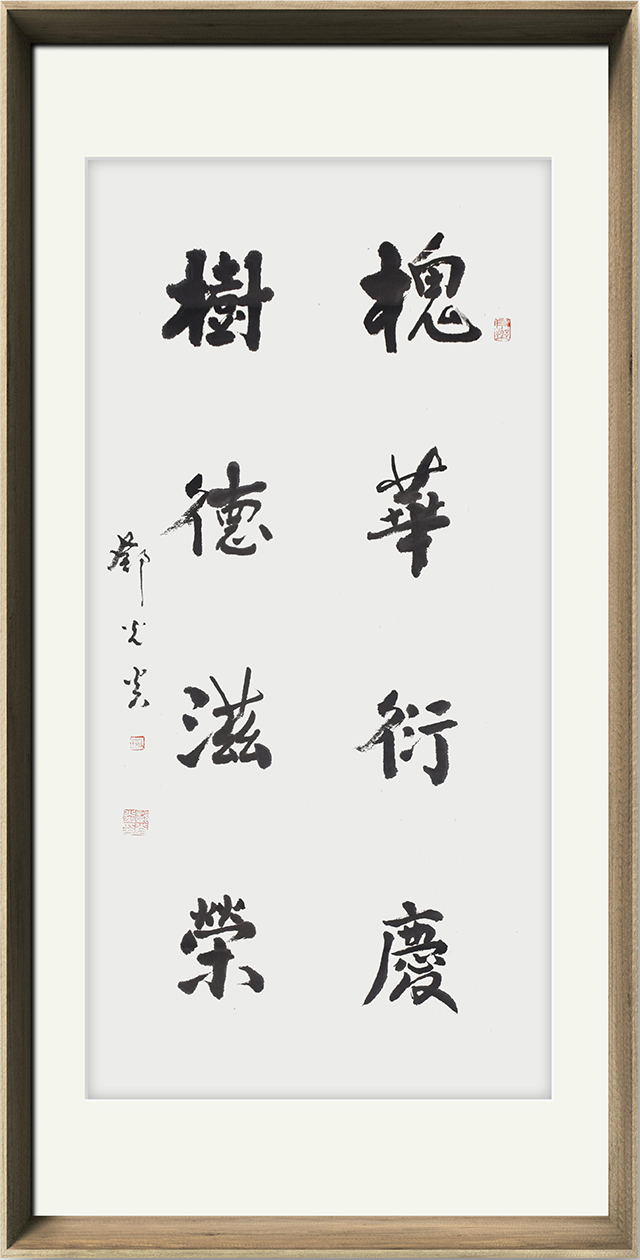 槐華衍慶
樹德滋榮
鄧光